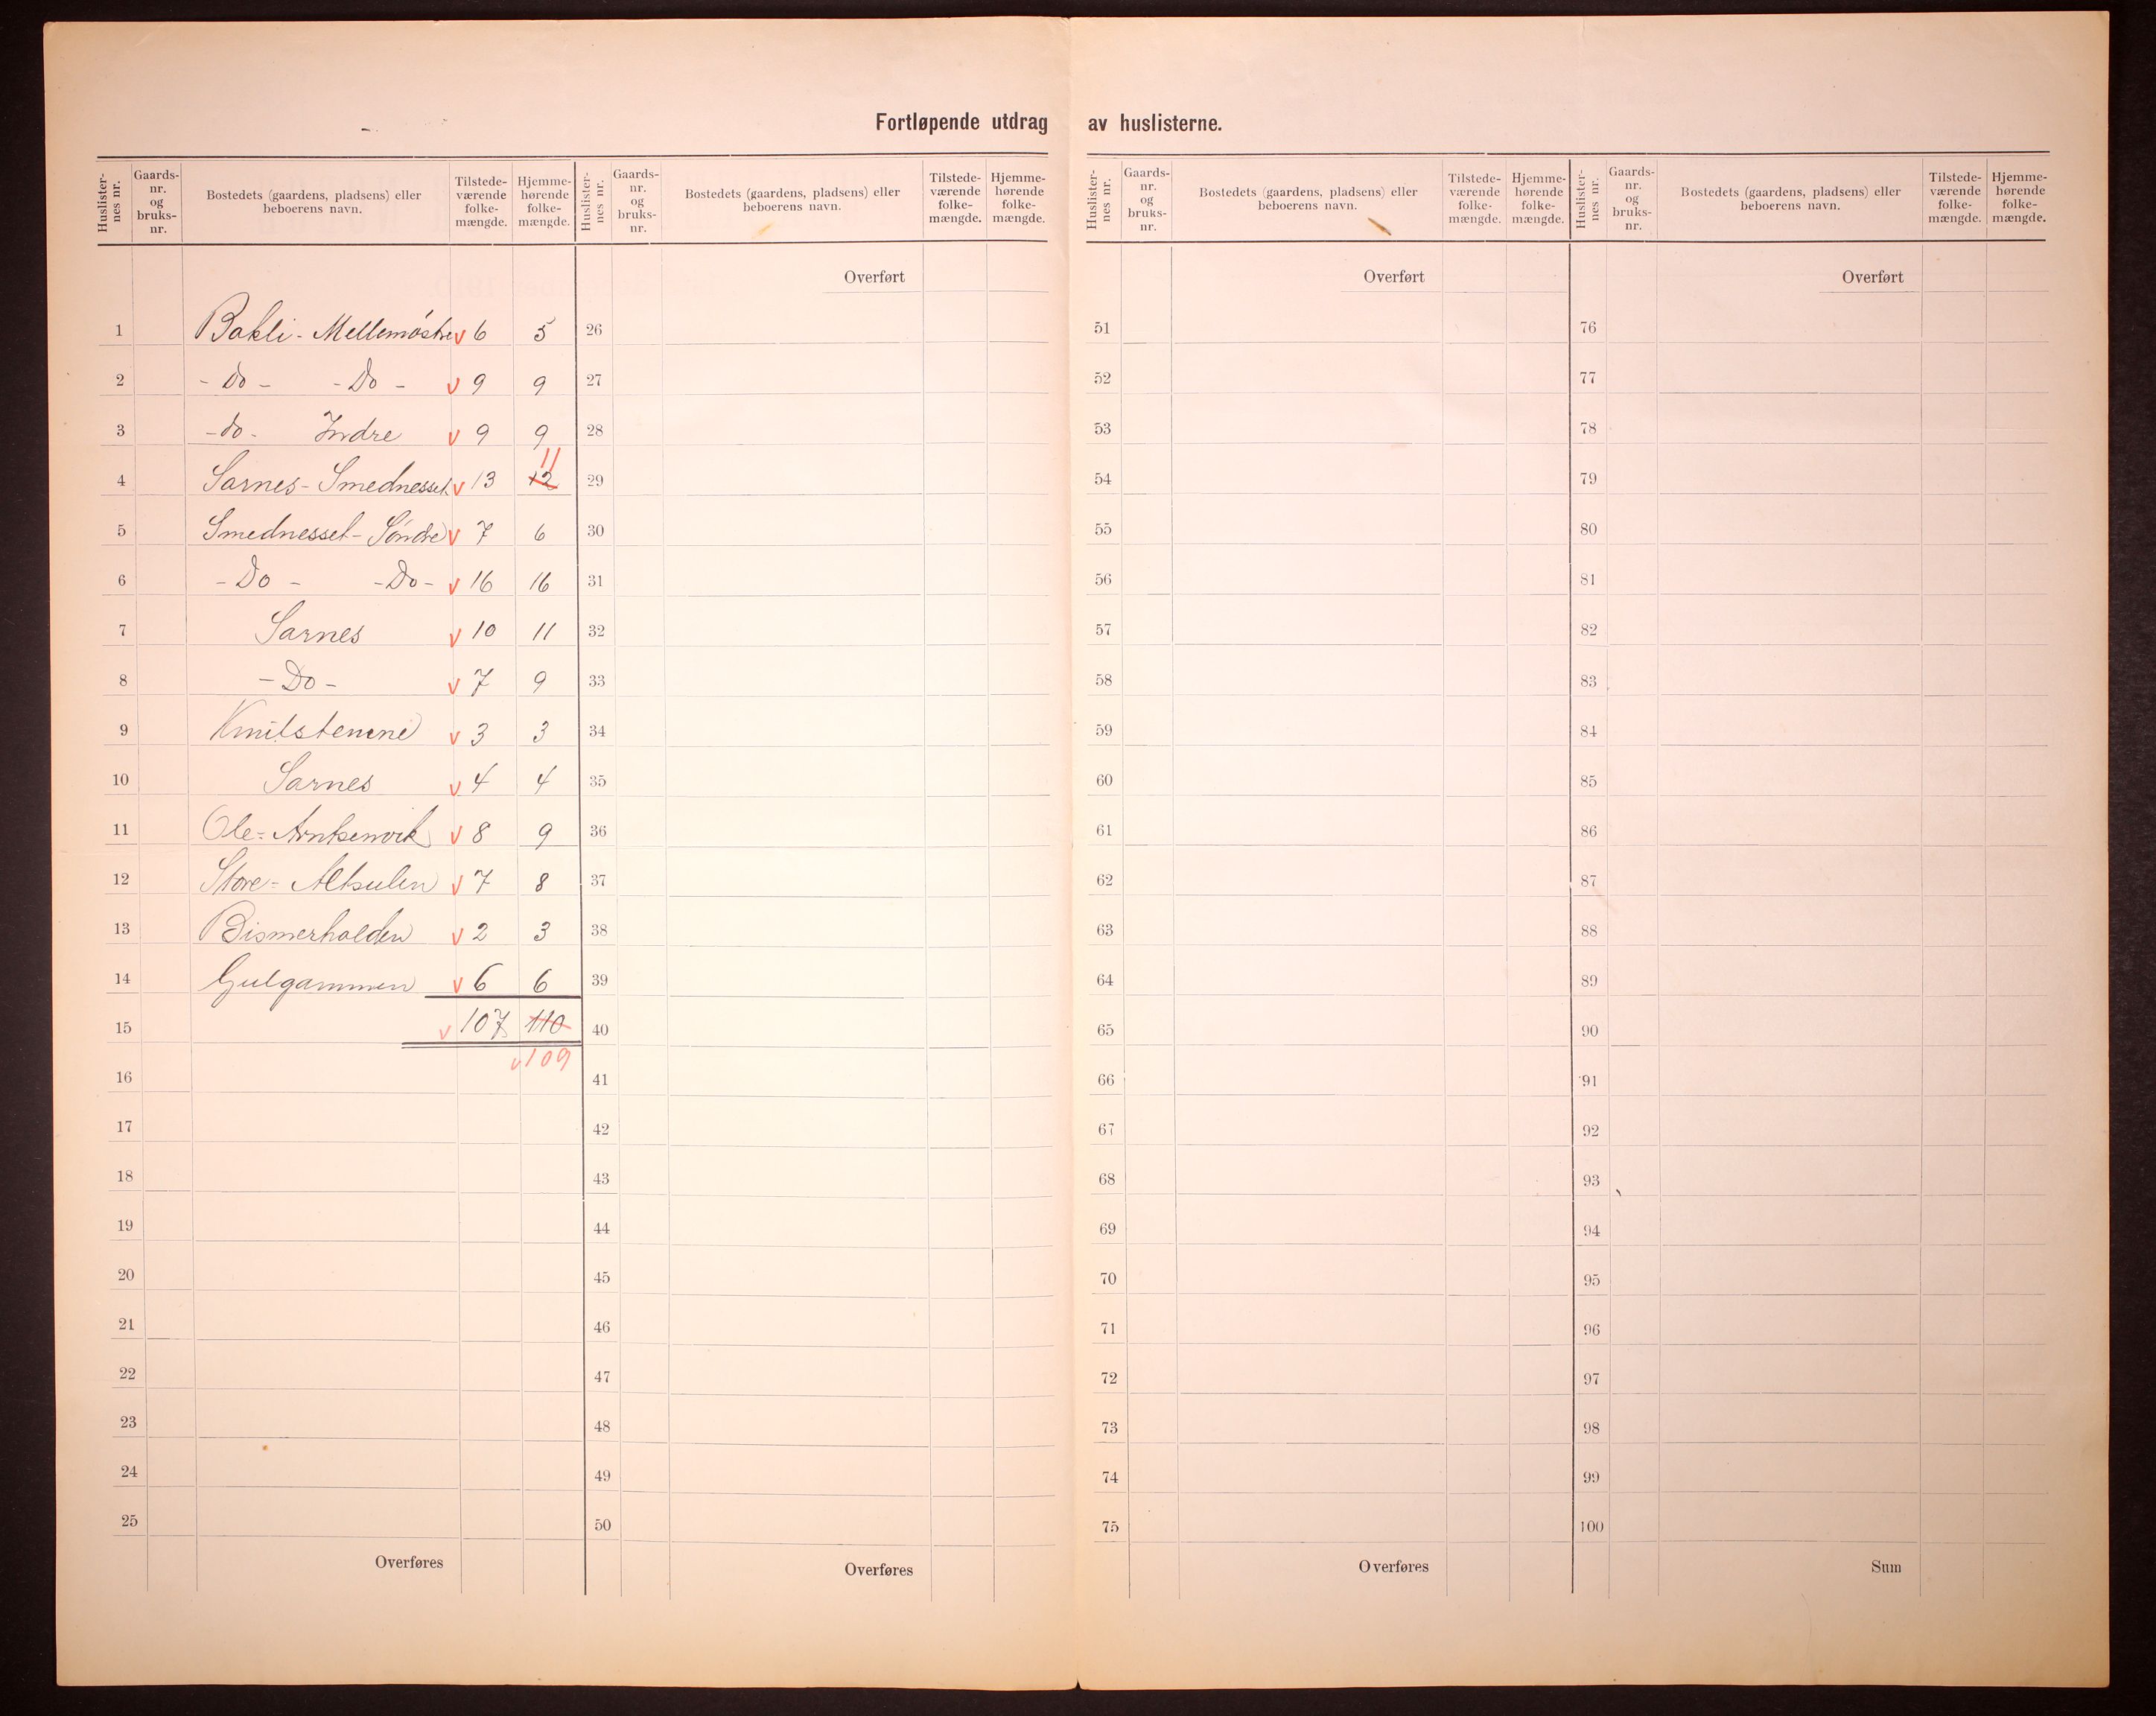 Fortløpende utdrag av huslisterne.
Huslister-nes nr. Gaards-nr. og bruks-nr. Bostedets (gaardens, pladsens) eller beboerens navn. Tilstede-værende folke-mængde. Hjemme-hørende folke-mængde.
Huslister-nes nr. Gaards-nr. og bruks-nr. Bostedets (gaardens, pladsens) eller beboerens navn. Tilstede-værende folke-mængde. Hjemme-hørende folke-mængde.
Huslister-nes nr. Gaards-nr. og bruks-nr. Bostedets (gaardens, pladsens) eller beboerens navn. Tilstede-værende folke-mængde. Hjemme-hørende folke-mængde.
Huslister-nes nr. Gaards-nr. og bruks-nr. Bostedets (gaardens, pladsens) eller beboerens navn. Tilstede-værende folke-mængde. Hjemme-hørende folke-mængde.
Overført Overført Overført
1 Bakli - Mellemøstre v 6 5 26 51 76
2 - Do - - Do - v 9 9 27 52 77
3 - do - Indre v 9 9 28 53 78
4 Sarnes - Smednesset v 13 12 11 29 54 79
5 Smednesset - Søndre v 7 6 30 55 80
6 - Do - - Do - v 16 16 31 56 81
7 Sarnes v 10 11 32 57 82
8 - Do - v 7 9 33 58 83
9 v 3 3 34 59 84
10 Sarnes v 4 4 35 60 85
11 Ole = Arntsenvik v 8 9 36 61 86
12 Store = Altsulen v 7 8 37 62 87
13 Bismerhalden v 2 3 38 63 88
14 Gulgammen v 6 6 39 64 89
15 v 107 110 40 65 90
v 109
16 41 66 91
17 42 67 92
18 43 68 93
19 44 69 94
20 45 70 95
21 46 71 96
22 47 72 97
23 48 73 98
24 49 74 99
25 50 75 100
Overføres Overføres Overføres Sum